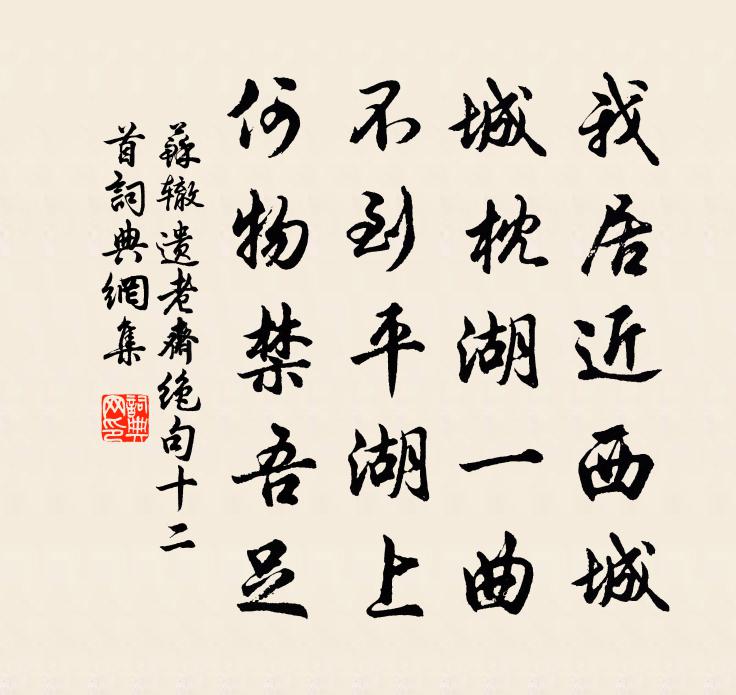 我居近西城
城枕湖一曲
不到平湖上
何物禁吾足
蘇辙遗老齋绝句十二
首詞典網集
詞典
网印